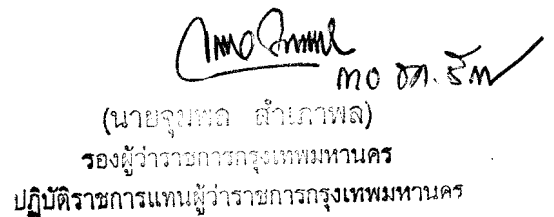 (นายจุมพล สำเภาพล)
รองผู้ว่าราชการกรุงเทพมหานคร
ปฏิบัติราชการแทนผู้ว่าราชการกรุงเทพมหานคร